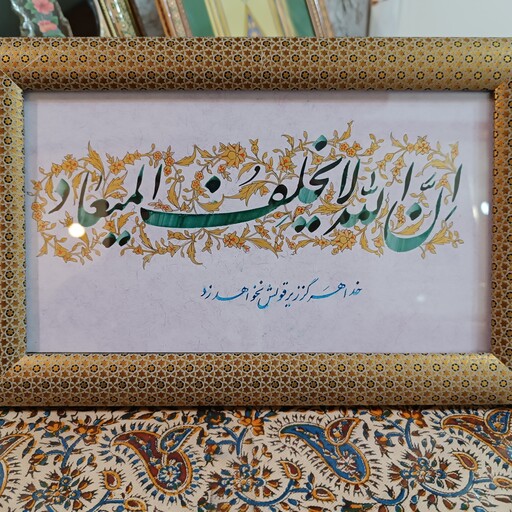 اِنَّ اللّٰهَ لا یُخلِفُ المیعاد
خدا هرگز زیر قولش نخواهد زد